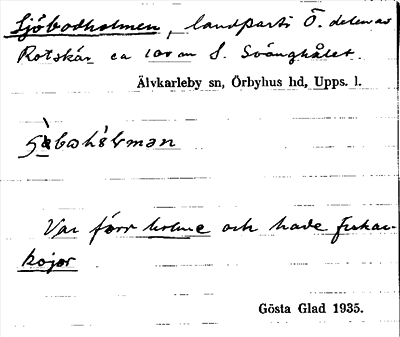 Sjöbodholmen, landparti Ö. delen av
Rotskär ca 100 m S. Svänghålet.
Älvkarleby sn, Örbyhus hd, Upps. l.
Var förr holme och hade fiskar-
kojor
Gösta Glad 1935.